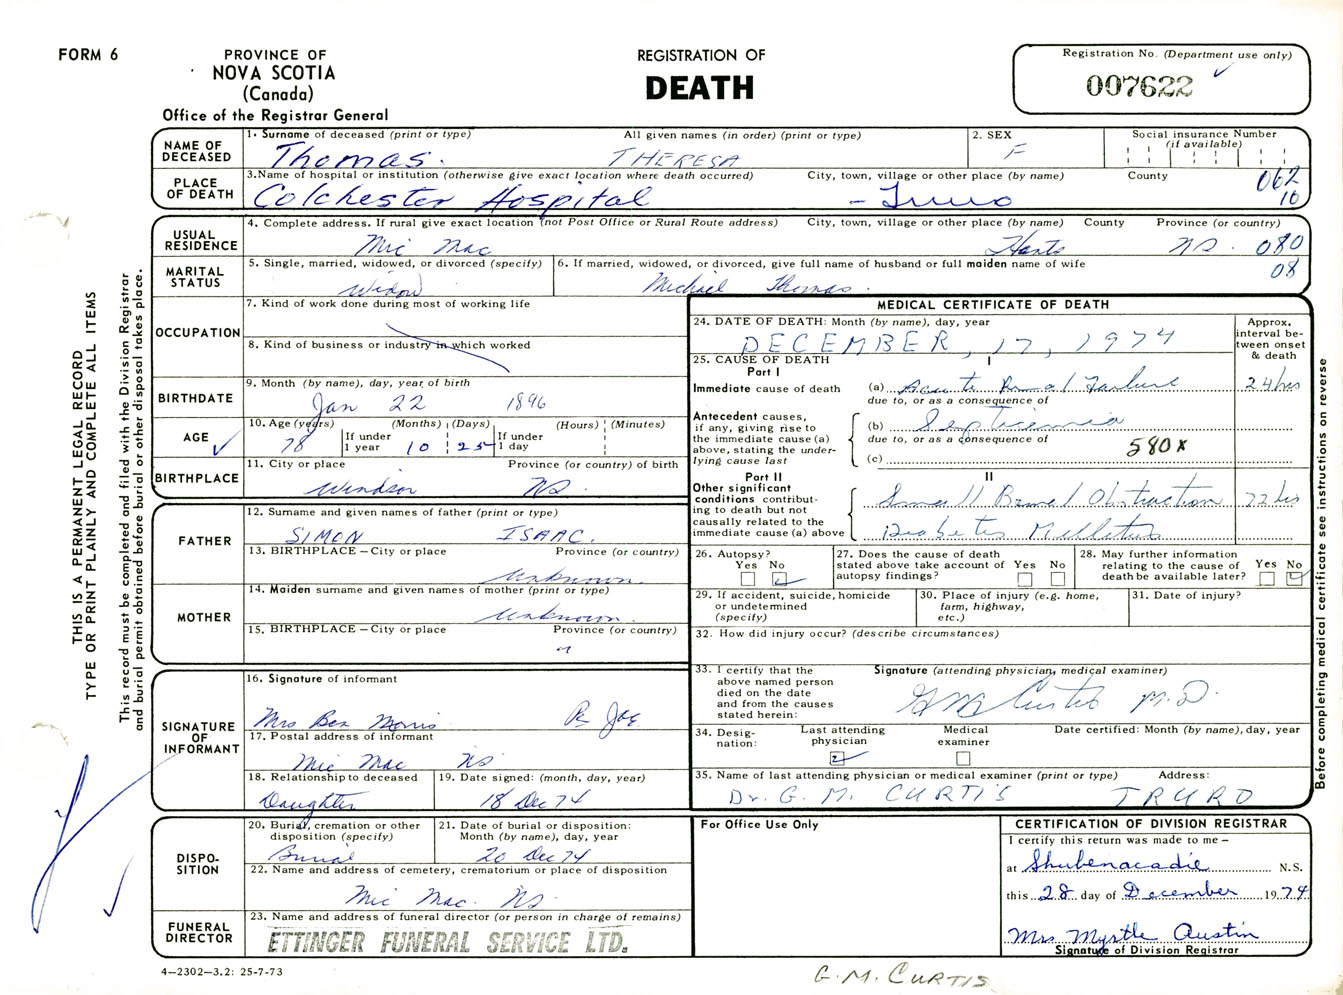 FORM 6
PROVINCE OF
NOVA SCOTIA
(Canada)
Office of the Registrar General
REGISTRATION OF
DEATH
Registration No. (Department use only)
007622
THIS IS A PERMANENT LEGAL RECORD
TYPE OR PRINT PLAINLY AND COMPLETE ALL ITEMS
This record must be completed and filed with the Division Registrar
and burial permit obtained before burial or other disposal takes place.
NAME OF DECEASED
1. Surname of deceased (print or type) All given names (in order) (print or type)
Thomas. THERESA
2. SEX
F
Social insurance Number
(if available)
PLACE OF DEATH
3. Name of hospital or institution (otherwise give exact location where death occurred) City, town, village or other place (by name) County
Colchester Hospital - Truro
062
10
USUAL RESIDENCE
4. Complete address. If rural give exact location (not Post Office or Rural Route address) City, town, village or other place (by name) County Province (or country)
Mic Mac Hants NS. 080
08
MARITAL STATUS
5. Single, married, widowed, or divorced (specify)
Widow
6. If married, widowed, or divorced, give full name of husband or full maiden name of wife
Michael Thomas.
OCCUPATION
7. Kind of work done during most of working life
8. Kind of business or industry in which worked
BIRTHDATE
9. Month (by name), day, year, of birth
Jan 22 1896
AGE
10. Age (years) (Months) (Days) (Hours) (Minutes)
78 If under 1 year 10 25 If under 1 day
BIRTHPLACE
11. City or place Province (or country) of birth
Windsor NS
FATHER
12. Surname and given names of father (print or type)
SIMON ISAAC.
13. BIRTHPLACE – City or place Province (or country)
Unknown.
MOTHER
14. Maiden surname and given names of mother (print or type)
Unknown.
15. BIRTHPLACE – City or place Province (or country)
"
SIGNATURE OF INFORMANT
16. Signature of informant
Mrs Ben Morris
17. Postal address of informant
Mic Mac NS
18. Relationship to deceased
Daughter
19. Date signed: (month, day, year)
18 Dec 74
DISPO-
SITION
20. Burial, cremation or other
disposition (specify)
Burial
21. Date of burial or disposition:
Month (by name), day, year
20 Dec 74
22. Name and address of cemetery, crematorium or place of disposition
Mic Mac. NS.
FUNERAL DIRECTOR
23. Name and address of funeral director (or person in charge of remains)
ETTINGER FUNERAL SERVICE LTD.
4–2302–3.2: 25-7-73
MEDICAL CERTIFICATE OF DEATH
24. DATE OF DEATH: Month (by name), day, year
DECEMBER, 17, 1974
Approx.
interval be-
tween onset
& death
25. CAUSE OF DEATH
Part I
I
Immediate cause of death (a) Acute Renal Failure 24 hrs
due to, or as a consequence of
Antecedent causes,
if any, giving rise to
the immediate cause (a)
above, stating the under-
lying cause last
(b) Septicemia
due to, or as a consequence of
580x
(c)
Part II
II
Other significant
conditions contribut-
ing to death but not
causally related to the
immediate cause (a) above
Small Bowel Obstruction 72 hrs
Diabetes Mellitus
26. Autopsy?
Yes No
27. Does the cause of death
stated above take account of
autopsy findings?
Yes No
28. May further information
relating to the cause of
death be available later?
Yes No
29. If accident, suicide, homicide
or undetermined
(specify)
30. Place of injury (e.g. home,
farm, highway,
etc.)
31. Date of injury?
32. How did injury occur? (describe circumstances)
33. I certify that the
above named person
died on the date
and from the causes
stated herein:
Signature (attending physician, medical examiner)
GM Curtis M.D.
34. Desig-
nation:
Last attending
physician
Medical
examiner
Date certified: Month (by name), day, year
35. Name of last attending physician or medical examiner (print or type) Address:
Dr. G. M. CURTIS TRURO
For Office Use Only
CERTIFICATION OF DIVISION REGISTRAR
I certify this return was made to me –
at Shubenacadie N.S.
this 28 day of December 1974
Mrs Myrtle Austin
Signature of Division Registrar
G. M. CURTIS
Before completing medical certificate see instructions on reverse